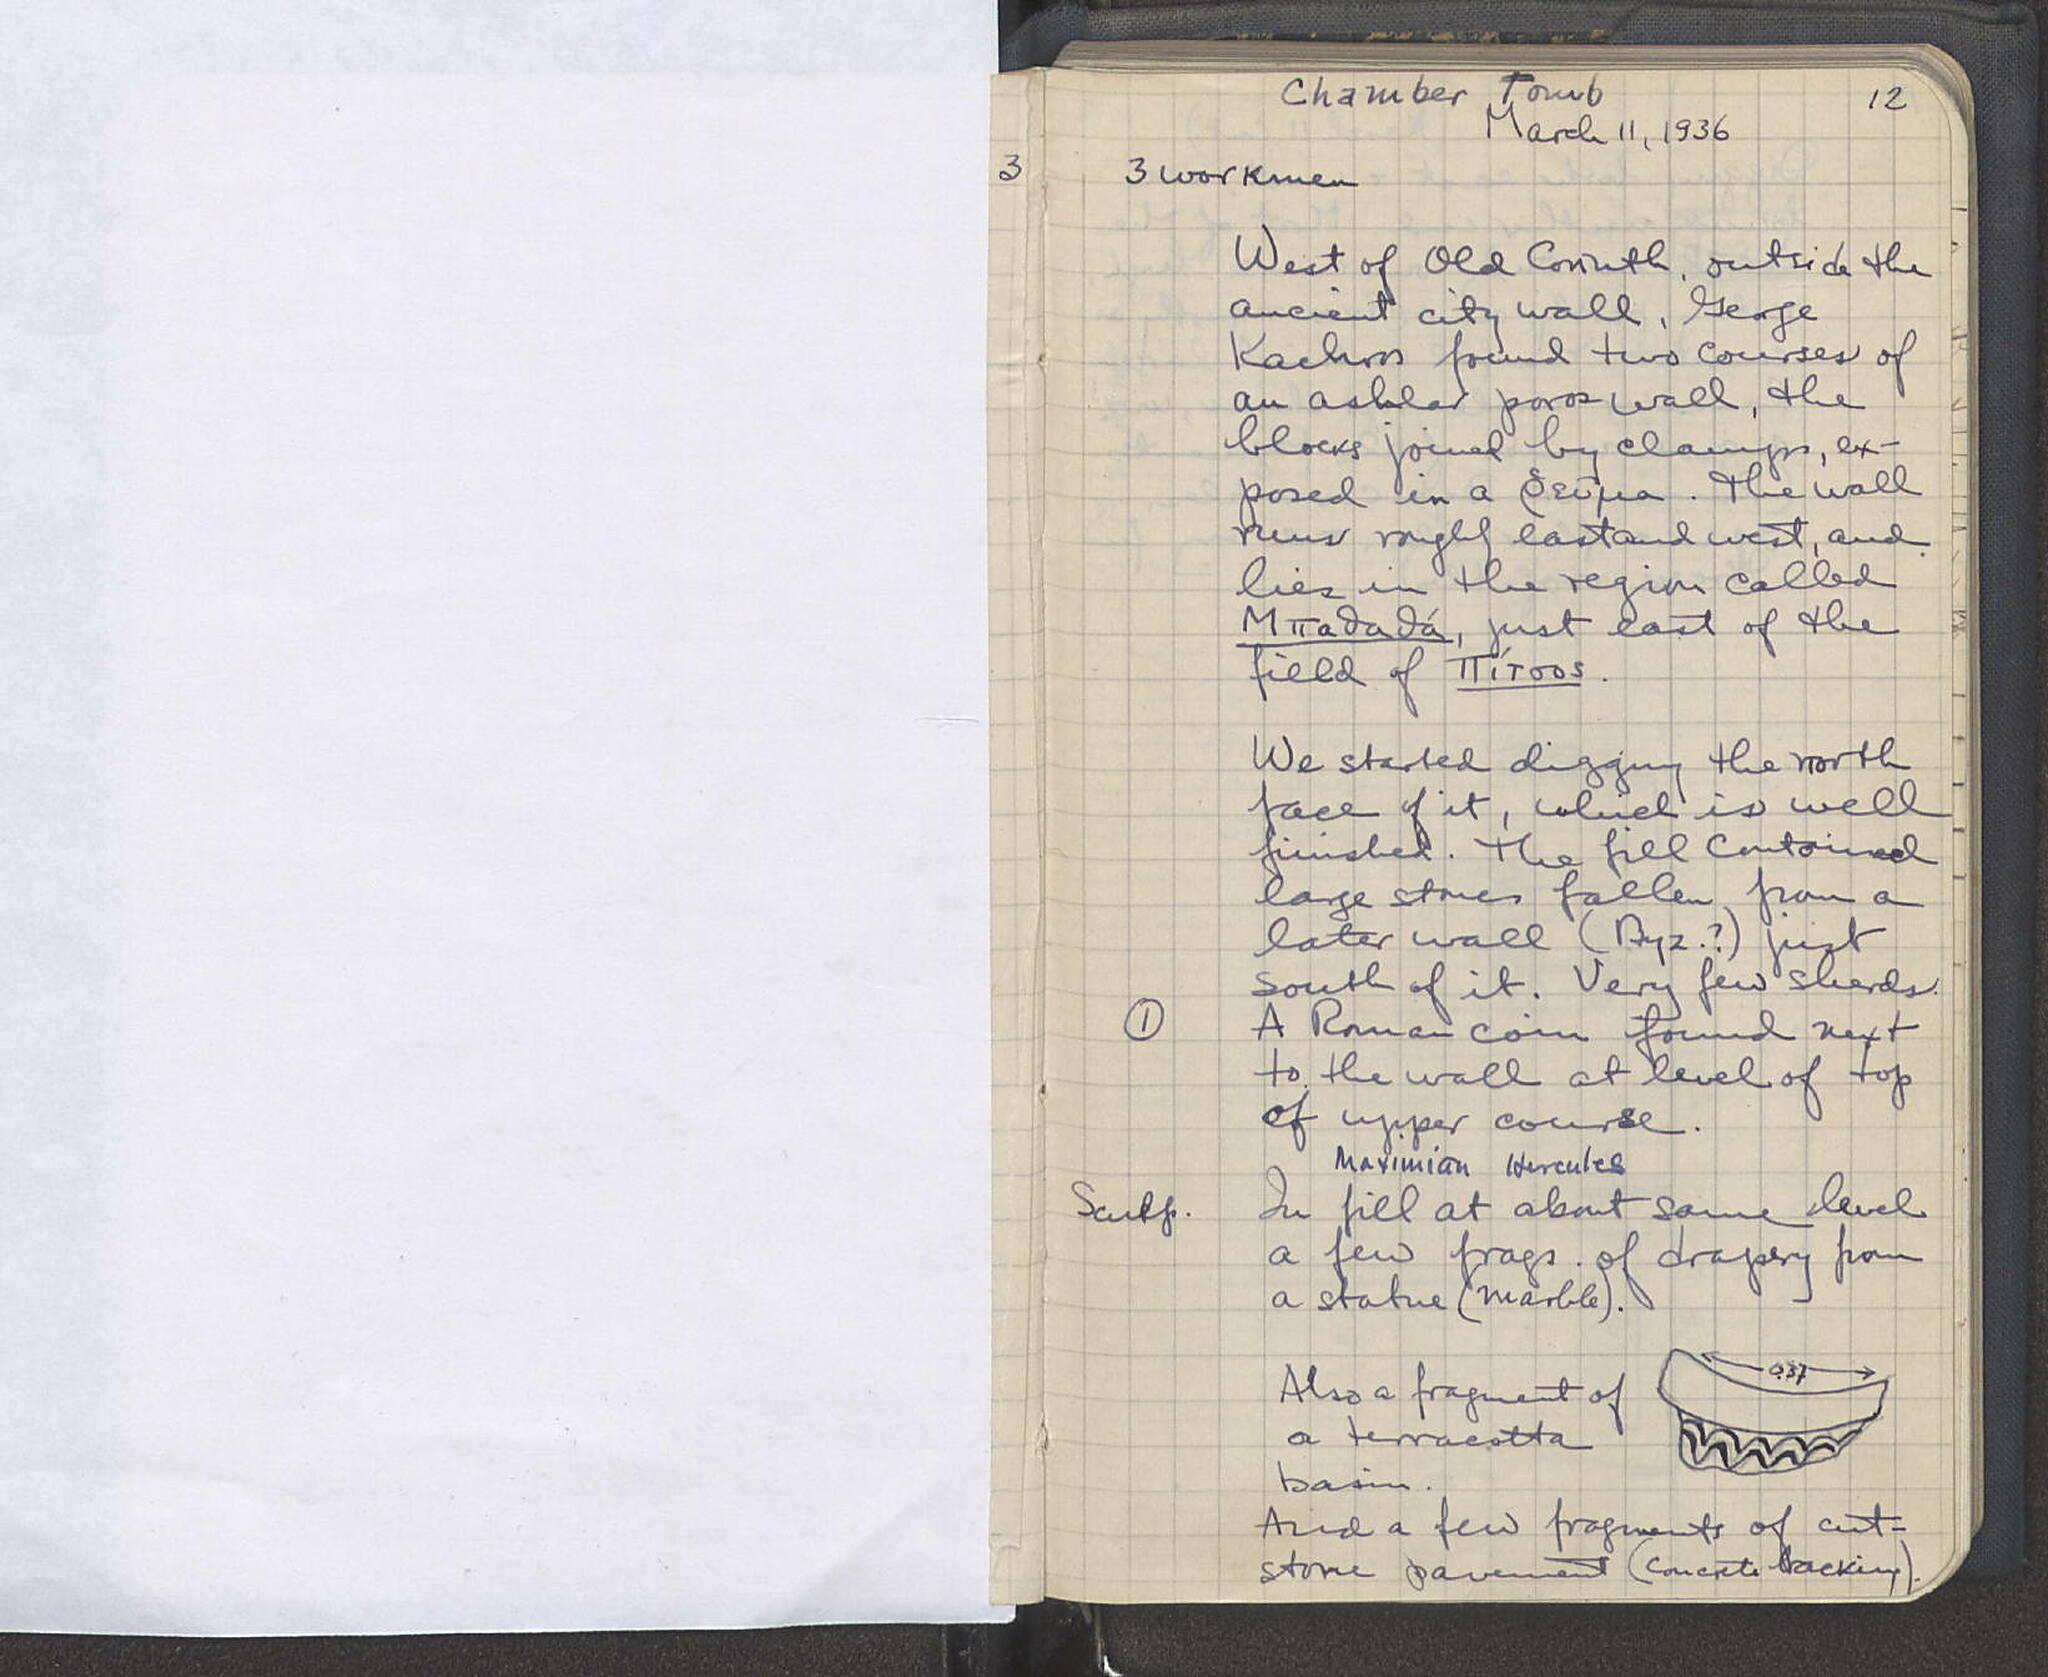 Chamber Tomb 12
March 11, 1936
3 3 workmen
West of Old Corinth, outside the
ancient city wall, George
Kachros found two courses of
an ashlar poros wall, the
blocks joined by clamps, ex-
posed in a ῥεῦμα. The wall
runs roughly east and west, and
lies in the region called
just east of the
field of
We started digging the north
face of it, which is well
finished. The fill contained
large stones fallen from a
later wall (Byz.?) just
south of it. Very few sherds.
① A Roman coin found next
to the wall at level of top
of upper course.
Maximian Hercules
Sculp. In fill at about same level
a few frags. of drapery from
a statue (marble).
0.37
Also a fragment of
a terracotta
basin.
And a few fragments of cut-
stone pavement (concrete backing).